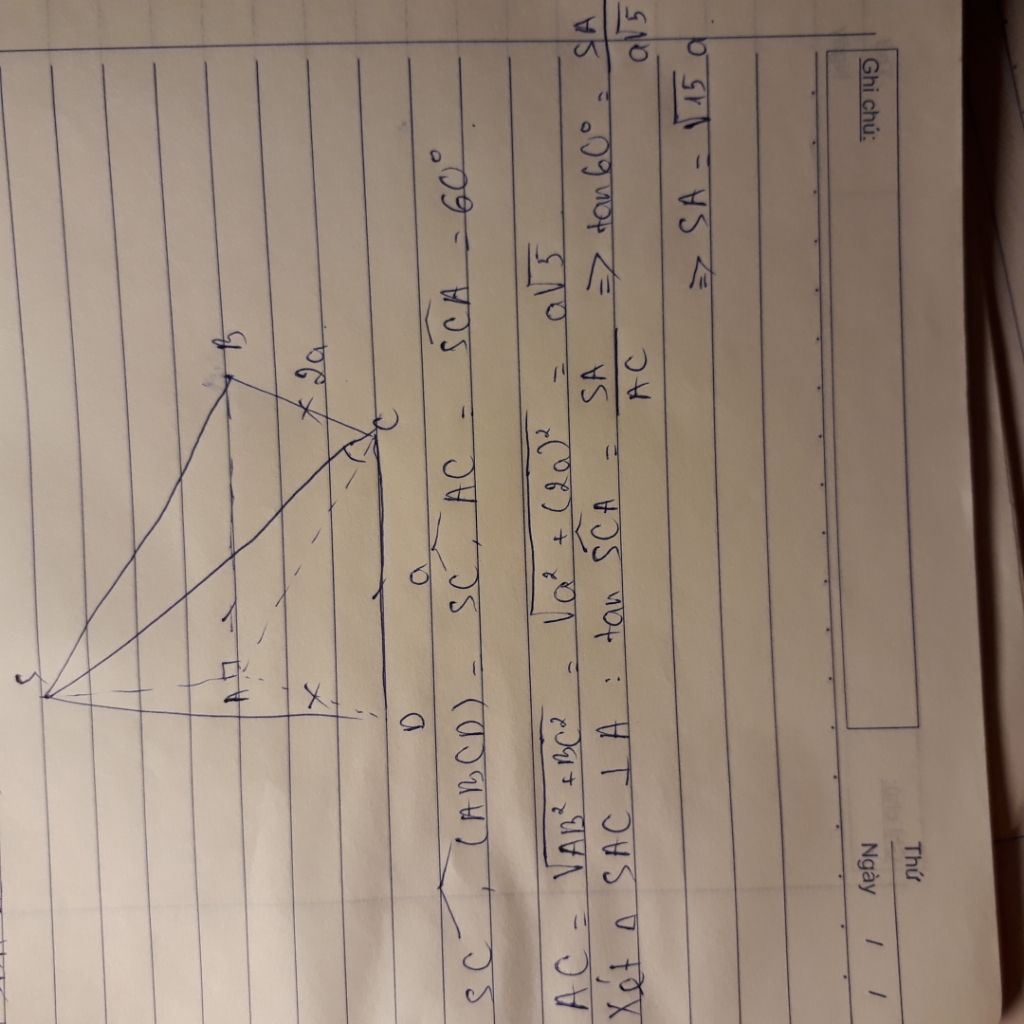 S
A
B
2a
C
D
a
SC, (ABCD) = SC, AC = SCA = 60°
AC = √AB² + BC² = √a² + (2a)² = a√5
Xét Δ SAC ⊥ A : tan SCA = SA/AC => tan60° = SA/a√5
=> SA = √15 a
Ghi chú:
Thứ
Ngày / /